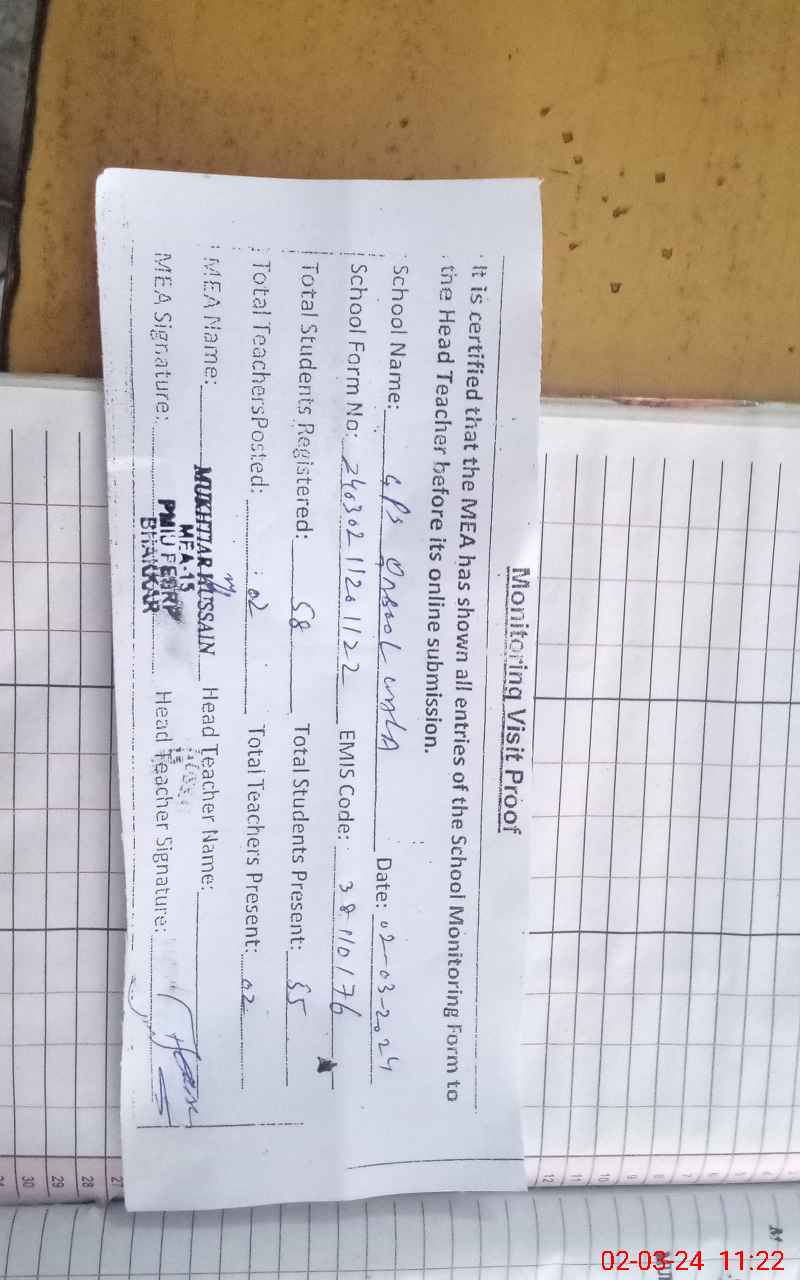 Monitoring Visit Proof
It is certified that the MEA has shown all entries of the School Monitoring Form to
the Head Teacher before its online submission.
School Name: GPS Date: 02-03-2024
School Form No: 24030211201122 EMIS Code: 38110176
Total Students Registered: 58 Total Students Present: 55
Total TeachersPosted: 02 Total Teachers Present: 02
MEA Name: MUKHTIAR HUSSAIN Head Teacher Name:
MEA-15
MEA Signature: PMIU PESRP Head Teacher Signature:
BHAKKAR
12
11
10
9
8
7
6
5
4
27
28
29
30
02-03-24 11:22